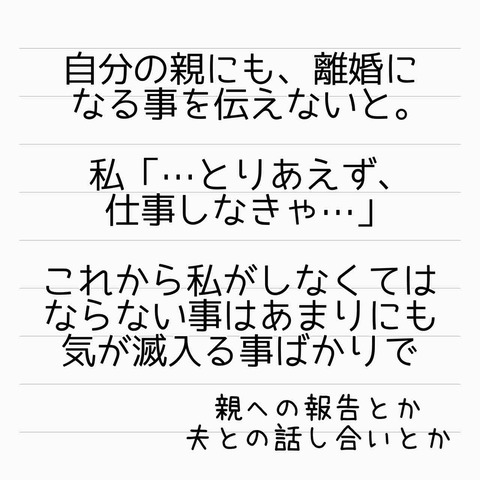 自分の親にも、離婚に
なる事を伝えないと。
私「…とりあえず、
仕事しなきゃ…」
これから私がしなくては
ならない事はあまりにも
気が滅入る事ばかりで
親への報告とか
夫との話し合いとか